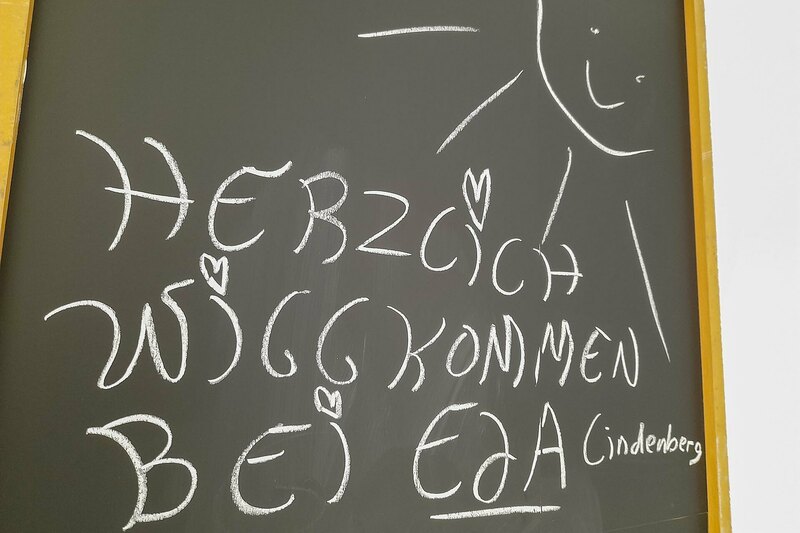 HERZLICH
WILLKOMMEN
BEI EDA Lindenberg